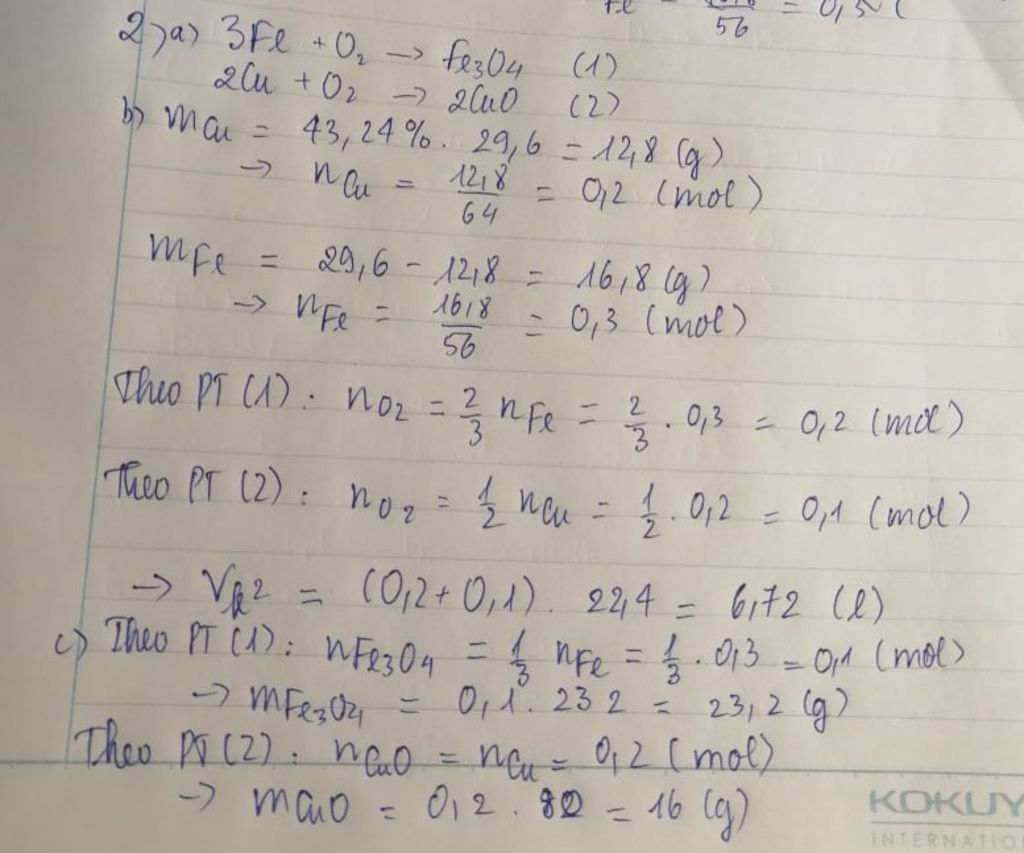 Fe = 16,8/56 = 0,3 (
2) a) 3Fe + O₂ → Fe₃O₄ (1)
2Cu + O₂ → 2CuO (2)
b) mCu = 43,24%. 29,6 = 12,8 (g)
→ nCu = 12,8/64 = 0,2 (mol)
mFe = 29,6 - 12,8 = 16,8 (g)
→ nFe = 16,8/56 = 0,3 (mol)
Theo PT (1): nO₂ = 2/3 nFe = 2/3 . 0,3 = 0,2 (mol)
Theo PT (2): nO₂ = 1/2 nCu = 1/2 . 0,2 = 0,1 (mol)
→ V 2 = (0,2+0,1). 22,4 = 6,72 (l)
c) Theo PT (1): nFe₃O₄ = 1/3 nFe = 1/3 . 0,3 = 0,1 (mol)
→ mFe₃O₄ = 0,1. 232 = 23,2 (g)
Theo PT (2): nCuO = nCu = 0,2 (mol)
→ mCuO = 0,2 . 80 = 16 (g)
KOKUY
INTERNATIO